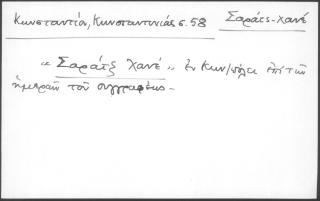 Κωνσταντίου, Κωνσταντινιάς σ. 58 Σαράτς-Χανέ
"Σαράτζ Χανέ" ἐν Κων/πόλει ἐπὶ τῶν
ἡμερῶν τοῦ συγγραφέως -